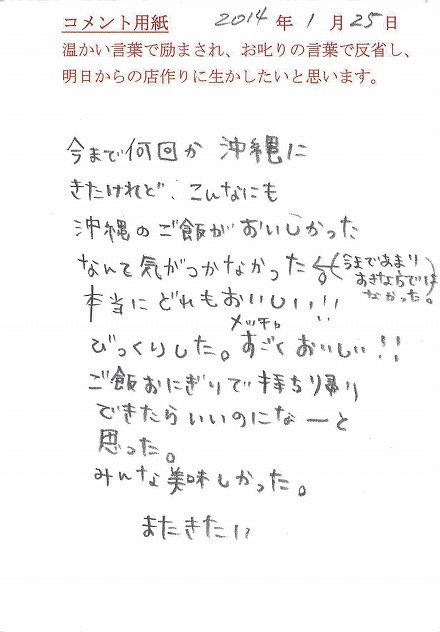 コメント用紙 2014年1月25日
温かい言葉で励まされ、お叱りの言葉で反省し、
明日からの店作りに生かしたいと思います。
今まで何回か 沖縄に
きたけれど、こんなにも
沖縄のご飯がおいしかった
なんて気がつかなかった。(今まであまり
おきならでは
なかった。)
本当にどれもおいしい!!
メッチャ
びっくりした。すごくおいしい!!
ご飯おにぎりで持ち帰り
できたらいいのになーと
思った。
みんな美味しかった。
またきたい